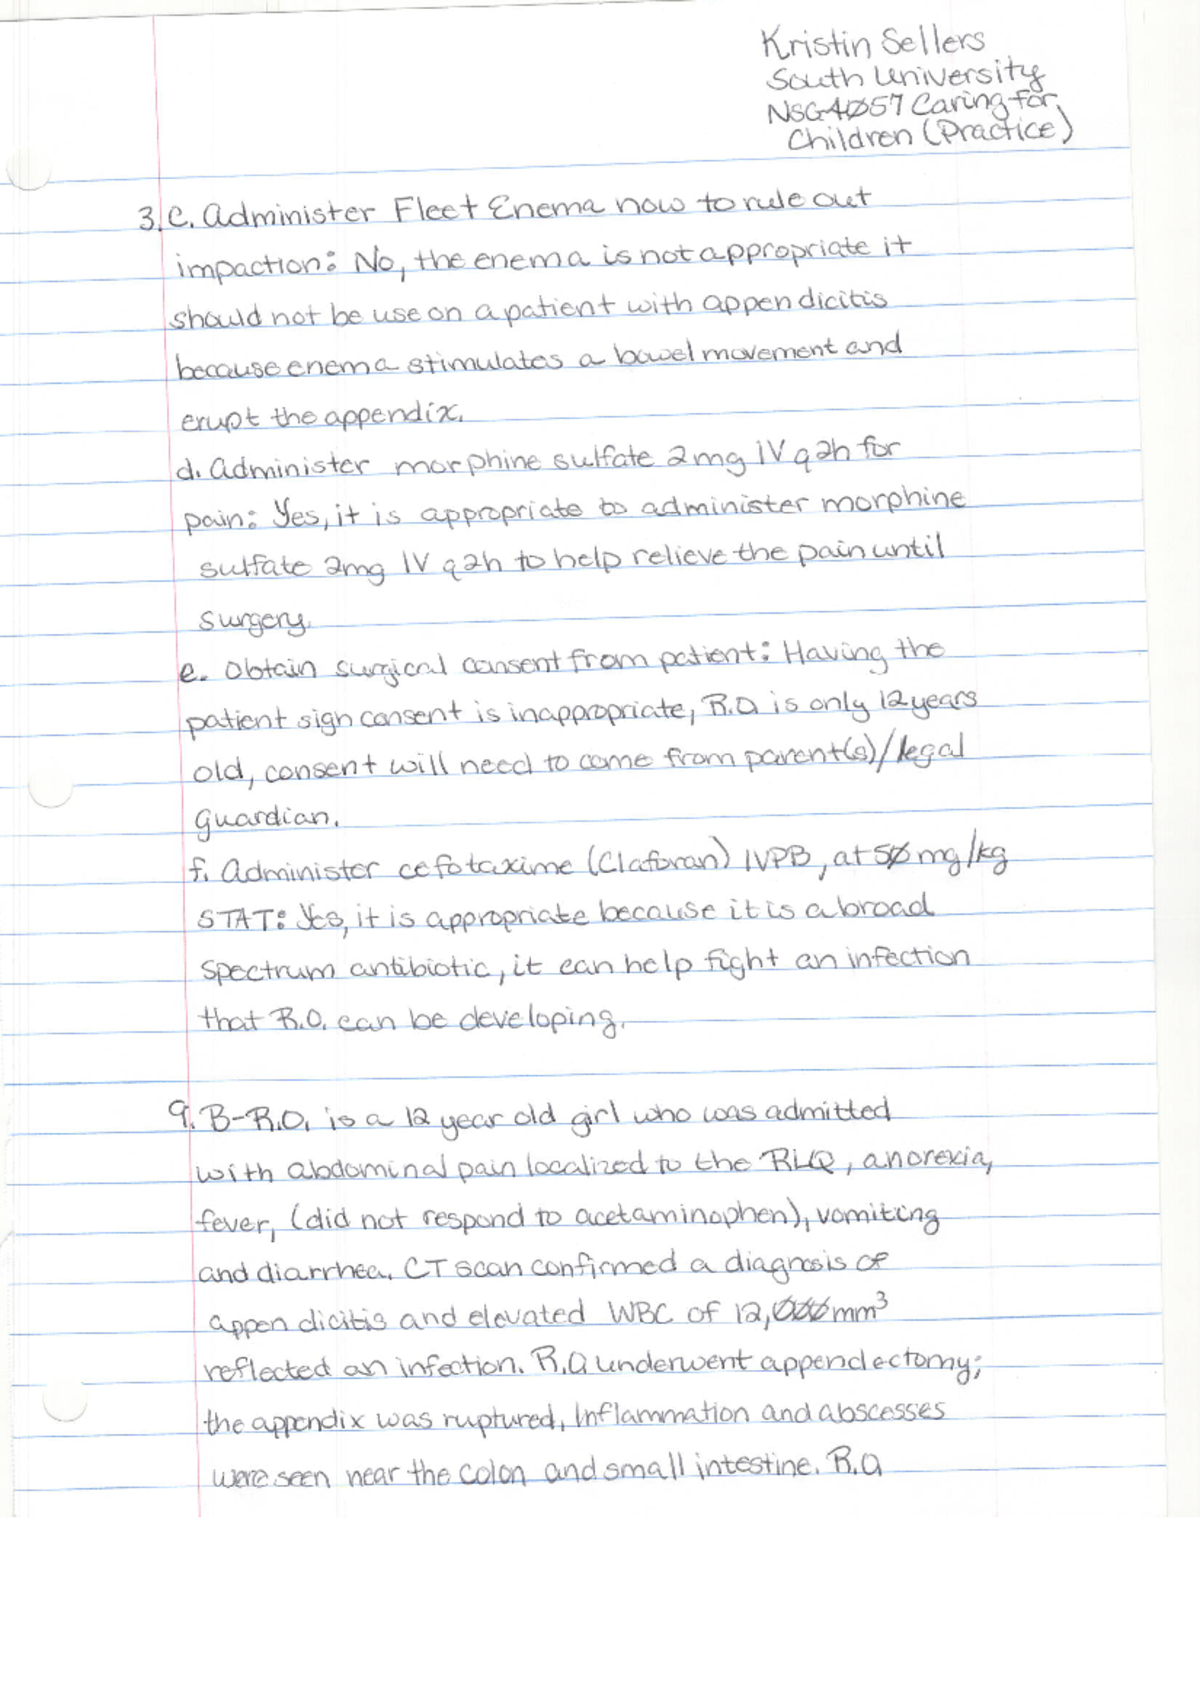 Kristin Sellers
South University
NSG4057 Caring for
Children (Practice)
3. C. Administer Fleet Enema now to rule out
impaction: No, the enema is not appropriate it
should not be use on a patient with appendicitis
because enema stimulates a bowel movement and
erupt the appendix.
d. Administer morphine sulfate 2mg IV q2h for
pain: Yes, it is appropriate to administer morphine
sulfate 2mg IV q2h to help relieve the pain until
surgery.
e. Obtain surgical consent from patient: Having the
patient sign consent is inappropriate, R.O. is only 12 years
old, consent will need to come from parent(s)/legal
guardian.
f. Administer cefotaxime (Claforan) IVPB, at 50 mg/kg
STAT: Yes, it is appropriate because it is a broad
spectrum antibiotic, it can help fight an infection
that R.O. can be developing.
9. B-R.O. is a 12 year old girl who was admitted
with abdominal pain localized to the RLQ, anorexia,
fever, (did not respond to acetaminophen), vomiting
and diarrhea. CT scan confirmed a diagnosis of
appendicitis and elevated WBC of 12,000mm³
reflected an infection. R.O underwent appendectomy;
the appendix was ruptured, Inflammation and abscesses
were seen near the colon and small intestine. R.O